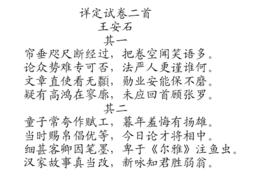 详定试卷二首
王安石
其一
帘垂咫尺断经过，把卷空闻笑语多。
论众势难专可否，法严人更谨谁何。
文章直使看无颣，勋业安能保不磨。
疑有高鸿在寥廓，未应回首顾张罗。
其二
童子常夸作赋工，暮年羞悔有扬雄。
当时赐帛倡优等，今日论才将相中。
细甚客卿因笔墨，卑于《尔雅》注鱼虫。
汉家故事真当改，新咏知君胜弱翁。